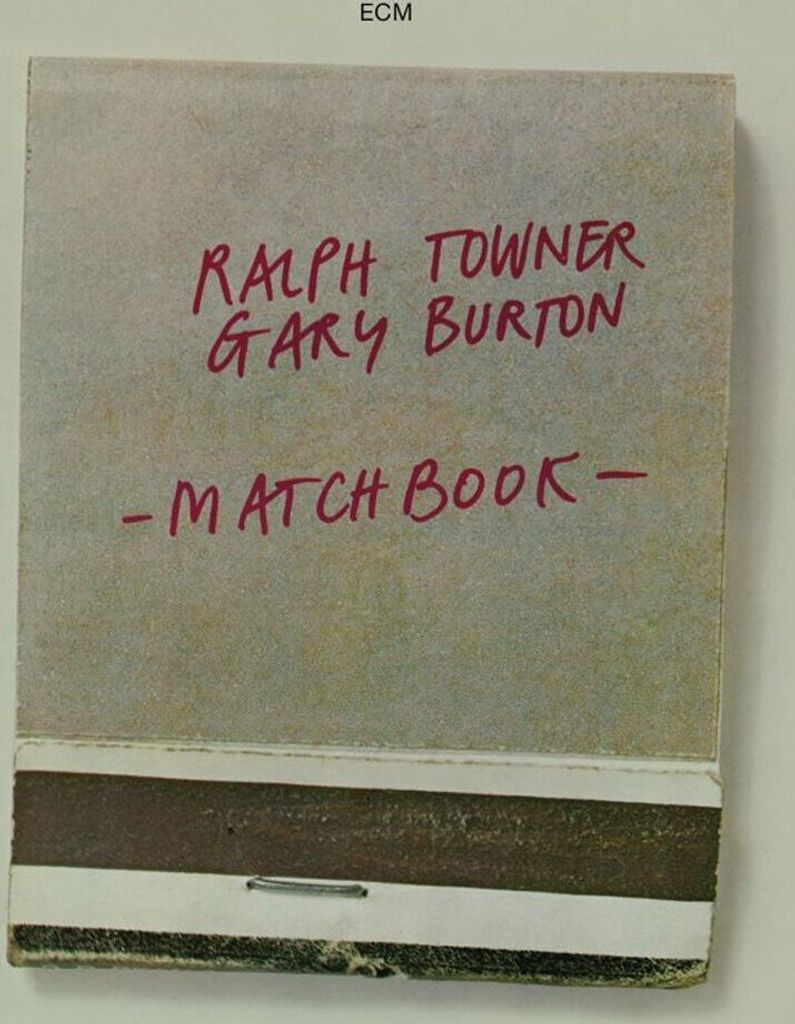 ECM
RALPH TOWNER
GARY BURTON
-MATCHBOOK-